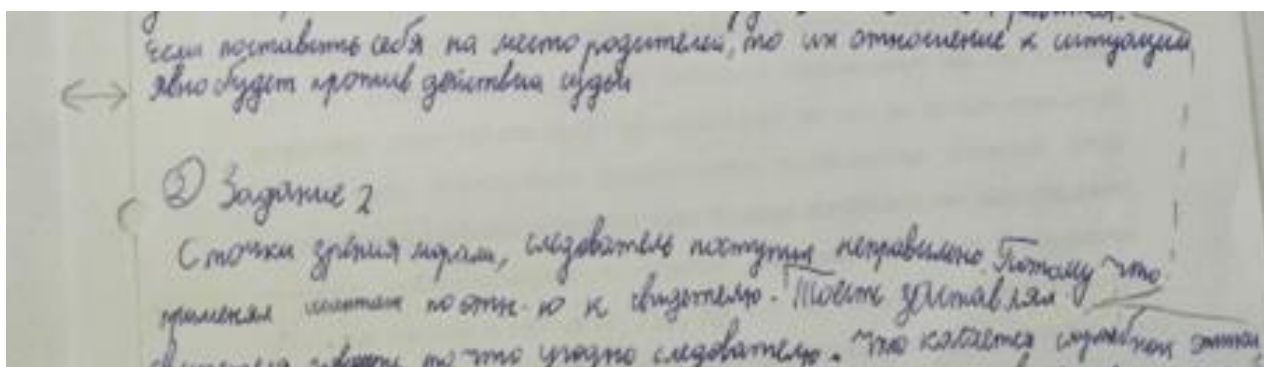 если поставить себя на место родителей, то их отношение к ситуации
явно будет против действия судьи
② Задание 2
С точки зрения морали, следователь поступил неправильно. Потому что
применял по отн-ю к свидетелю. Тоесть заставлял
то что угодно следователю. Что касается служебной этики,